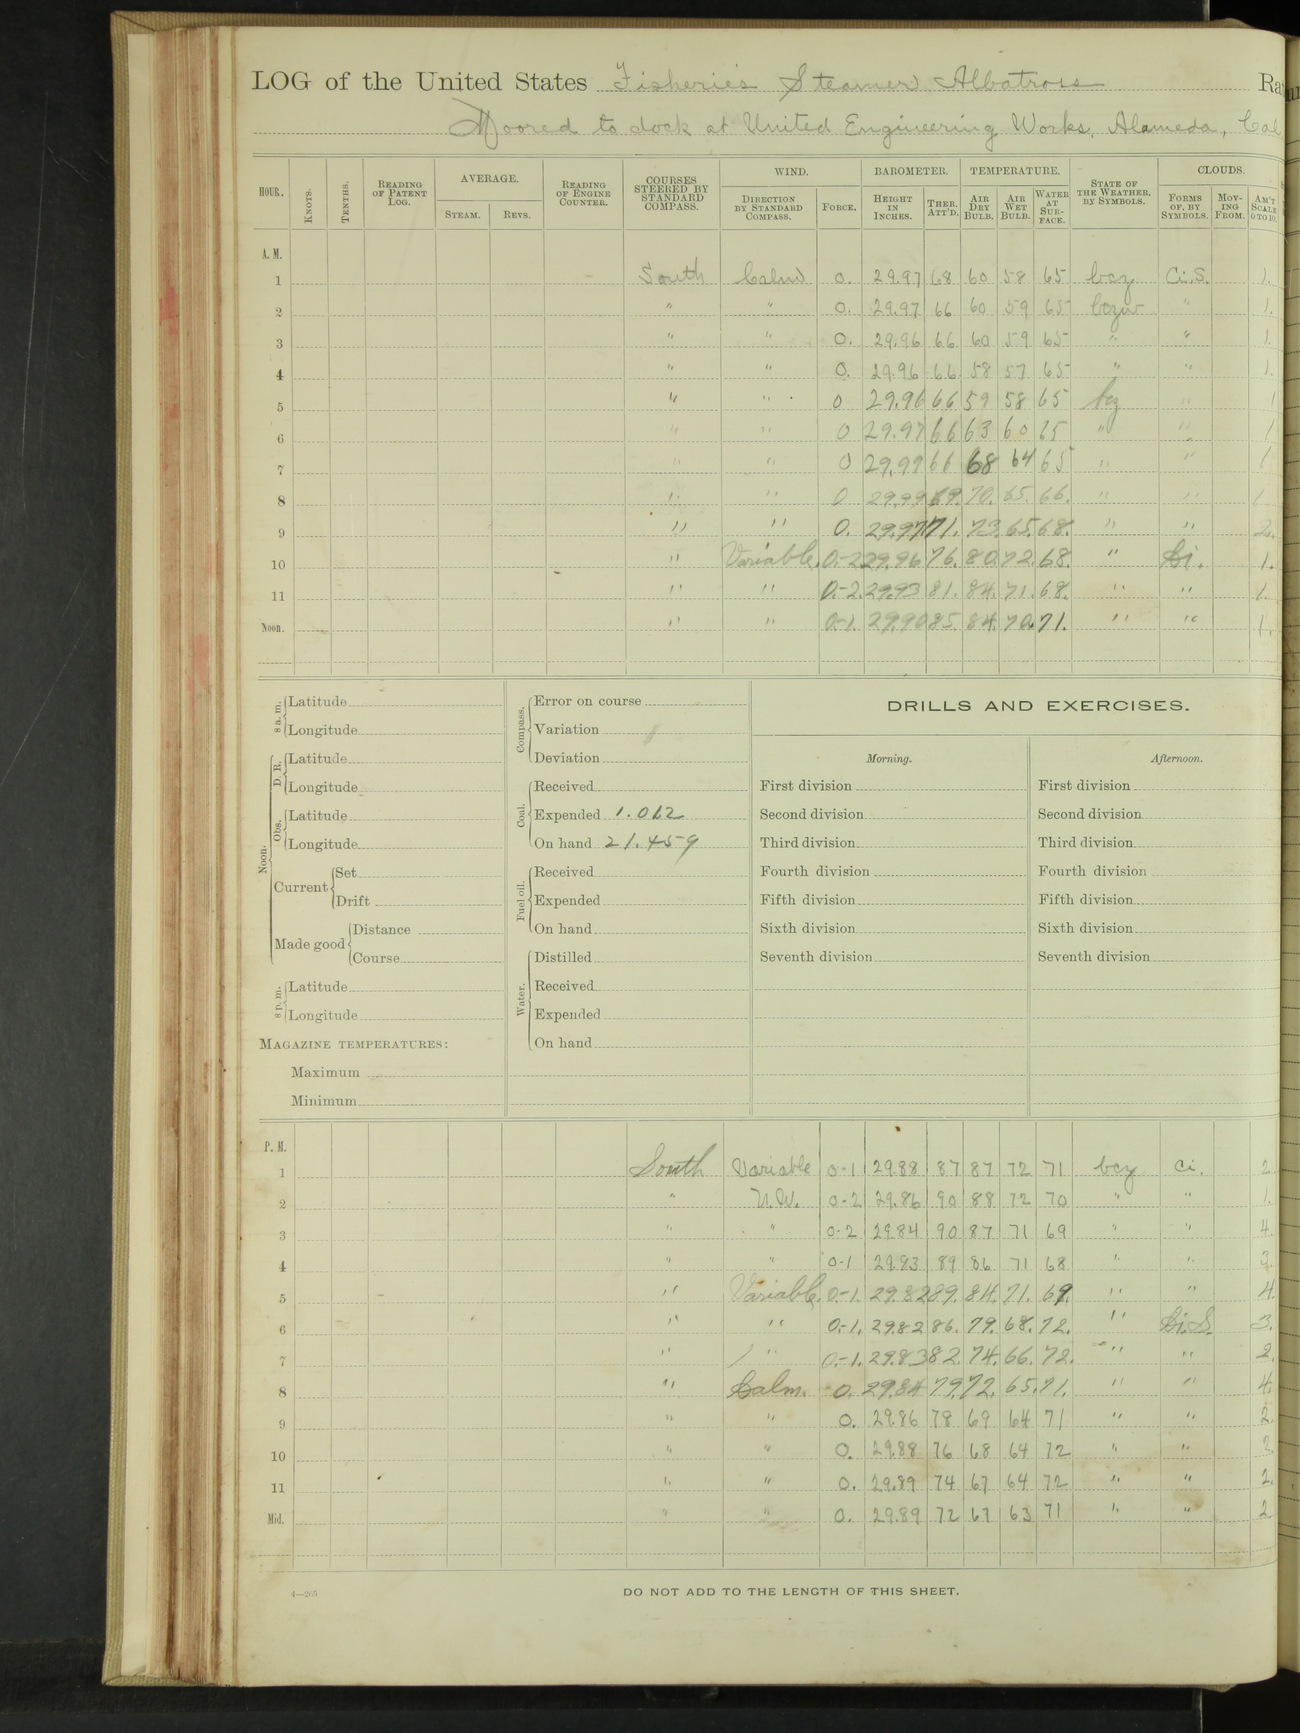 LOG of the United States Fisheries Steamer Albatross Ra
Moored to dock at United Engineering Works, Alameda, Cal
HOUR. KNOTS. TENTHS. READING OF PATENT LOG. AVERAGE. STEAM. REVS. READING OF ENGINE COUNTER. COURSES STEERED BY STANDARD COMPASS. WIND. DIRECTION BY STANDARD COMPASS. FORCE. BAROMETER. HEIGHT IN INCHES. THER. ATT'D. TEMPERATURE. AIR DRY BULB. AIR WET BULB. WATER AT SURFACE. STATE OF THE WEATHER, BY SYMBOLS. CLOUDS. FORMS OF, BY SYMBOLS. MOVING FROM. AM'T SCALE 0 TO 10.
A. M.
1 South Calm 0. 29.97 68 60 58 65 bcz Ci.S. 1.
2 " " 0. 29.97 66 60 59 65 bczw " 1.
3 " " 0. 29.96 66 60 59 65 " " 1.
4 " " 0. 29.96 66 58 57 65 " " 1.
5 " " 0 29.96 66 59 58 65 bcz " 1
6 " " 0 29.97 66 63 60 65 " " 1
7 " " 0 29.99 66 68 64 65 " " 1
8 " " 0 29.99 69. 70. 65. 66. " " 1
9 " " 0. 29.97 71. 73. 65. 68. " " 2.
10 " Variable. 0.-2 29.96 76. 80. 72. 68. " Ci. 1.
11 " " 0.-2. 29.93 81. 84. 71. 68. " " 1.
Noon. " " 0.-1. 29.90 85. 84. 70. 71. " " 1.
8 a. m. Latitude
Longitude
Noon. D. R. Latitude
Longitude
Obs. Latitude
Longitude
Current Set
Drift
Made good Distance
Course
8 p. m. Latitude
Longitude
MAGAZINE TEMPERATURES:
Maximum
Minimum
Compass. Error on course
Variation
Deviation
Coal. Received
Expended 1.062
On hand 21.459
Fuel oil. Received
Expended
On hand
Water. Distilled
Received
Expended
On hand
DRILLS AND EXERCISES.
Morning. Afternoon.
First division First division
Second division Second division
Third division Third division
Fourth division Fourth division
Fifth division Fifth division
Sixth division Sixth division
Seventh division Seventh division
P. M.
1 South Variable 0-1 29.88 87 87 72 71 bcz Ci. 2
2 " N.W. 0-2 29.86 90 88 72 70 " " 1.
3 " " 0-2 29.84 90 87 71 69 " " 4.
4 " " 0-1 29.83 89 86 71 68 " " 3.
5 " Variable. 0.-1. 29.82 89. 84. 71. 69. " " 4.
6 " " 0.-1. 29.82 86. 79. 68. 72. " Ci.S. 3.
7 " " 0.-1. 29.83 82. 74. 66. 72. " " 2.
8 " Calm. 0. 29.84 79. 72. 65. 71. " " 4.
9 " " 0. 29.86 78 69 64 71 " " 2.
10 " " 0. 29.88 76 68 64 72 " "
11 " " 0. 29.89 74 67 64 72 " " 2.
Mid. " " 0. 29.89 72 67 63 71 " " 2
4—265
DO NOT ADD TO THE LENGTH OF THIS SHEET.